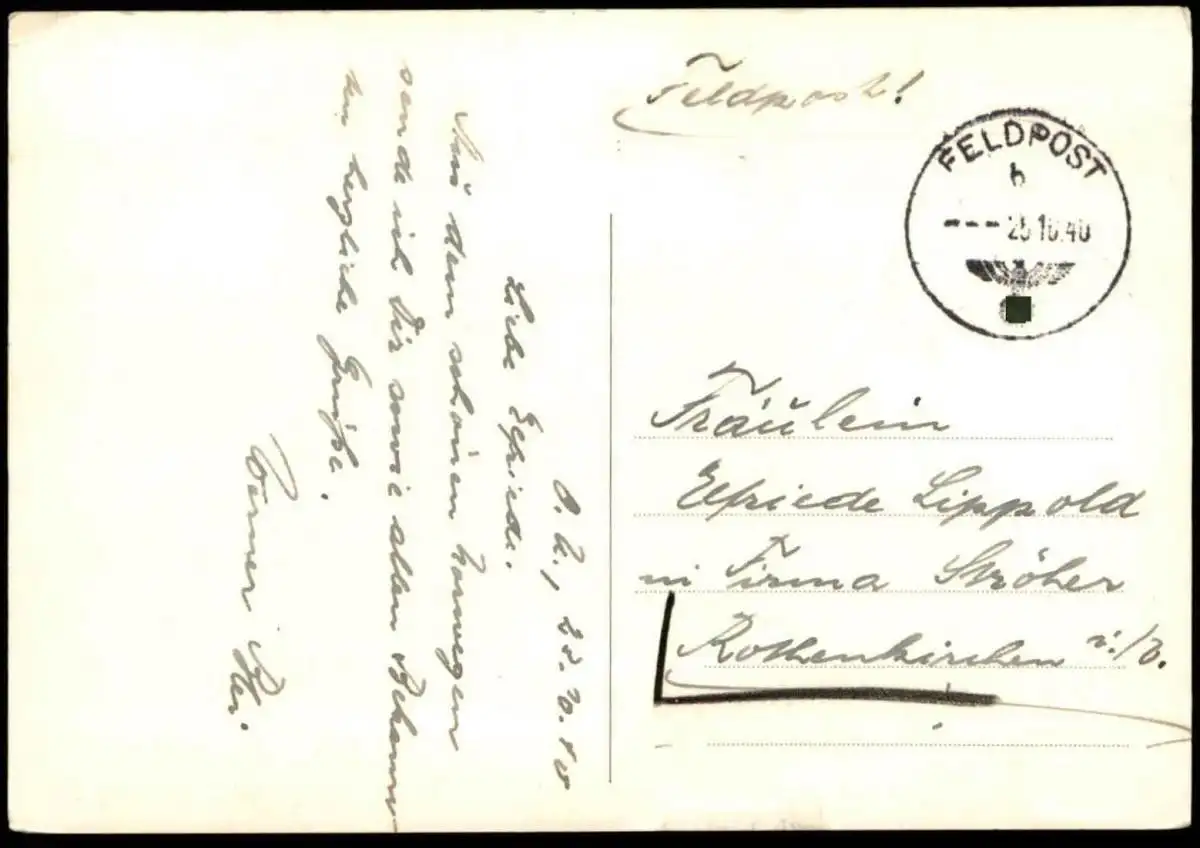 Feldpost!
FELDPOST
b
--- 25.10.40
Fräulein
Elfriede Lippold
in Firma Ströher
Rothenkirchen i./V.
O.U., 22.10.40
Liebe Elfriede.
Aus dem schönen Norwegen
sende ich Dir sowie allen Bekann
ten herzliche Grüße.
Werner